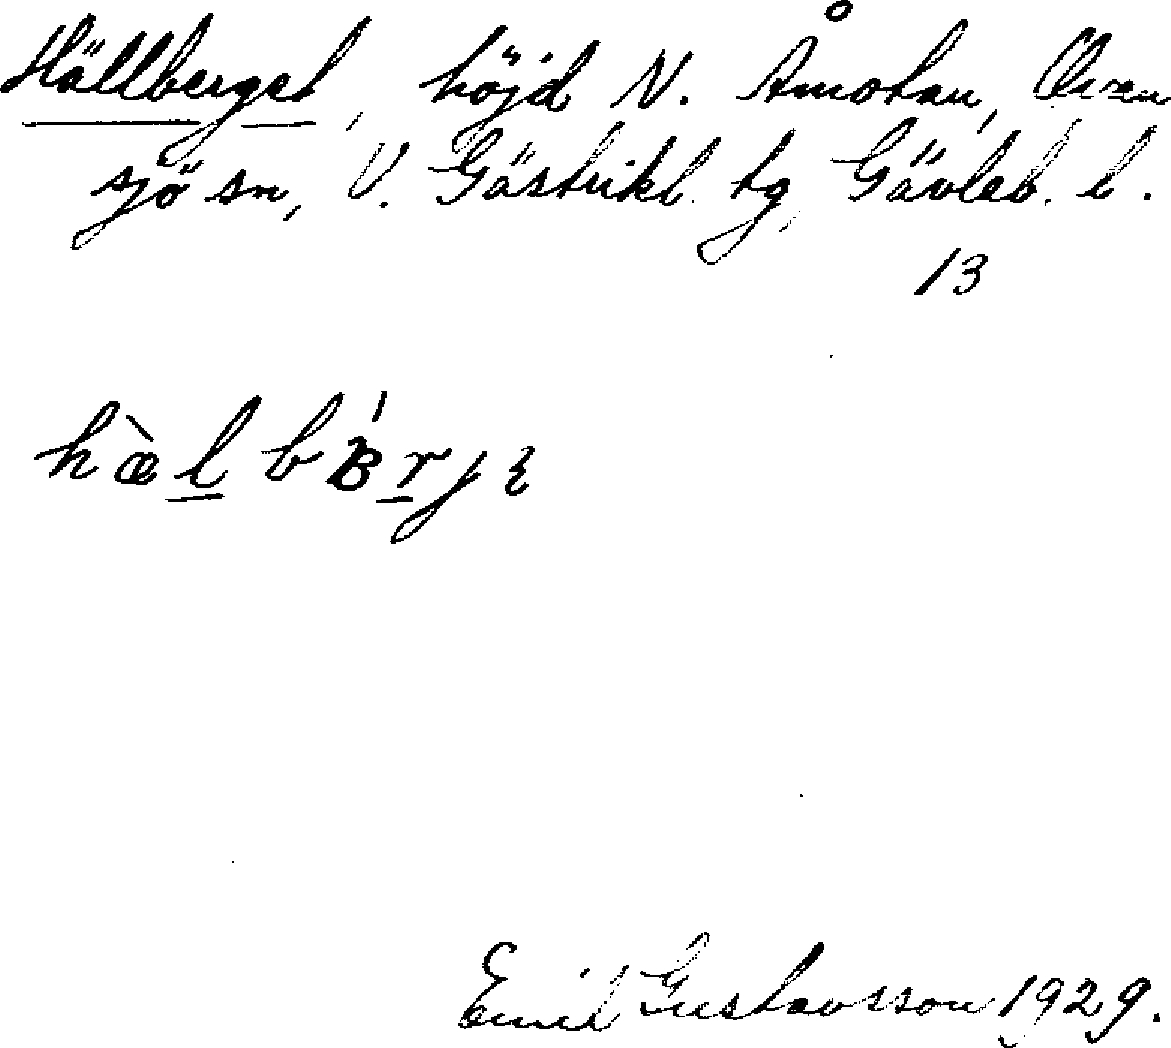 Hällberget, höjd N. Åmotan, Oven
sjö sn, V. Gästrikl. tg, Gävleb. l.
13
hæ̀l bʙ́rjɛ
Emil Gustavsson 1929.